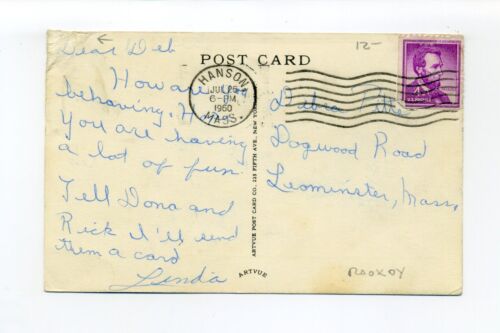 Dear Deb
How are you
behaving. Hope
you are having
a lot of fun
Tell Dona and
Rick I'll send
them a card
Linda
POST CARD
12-
HANSON
JUL 25
6-PM
1960
MASS.
Debra
Dogwood Road
Leominster, Mass.
ARTVUE POST CARD CO., 225 FIFTH AVE., NEW YORK
ARTVUE
4¢
U.S. POSTAGE